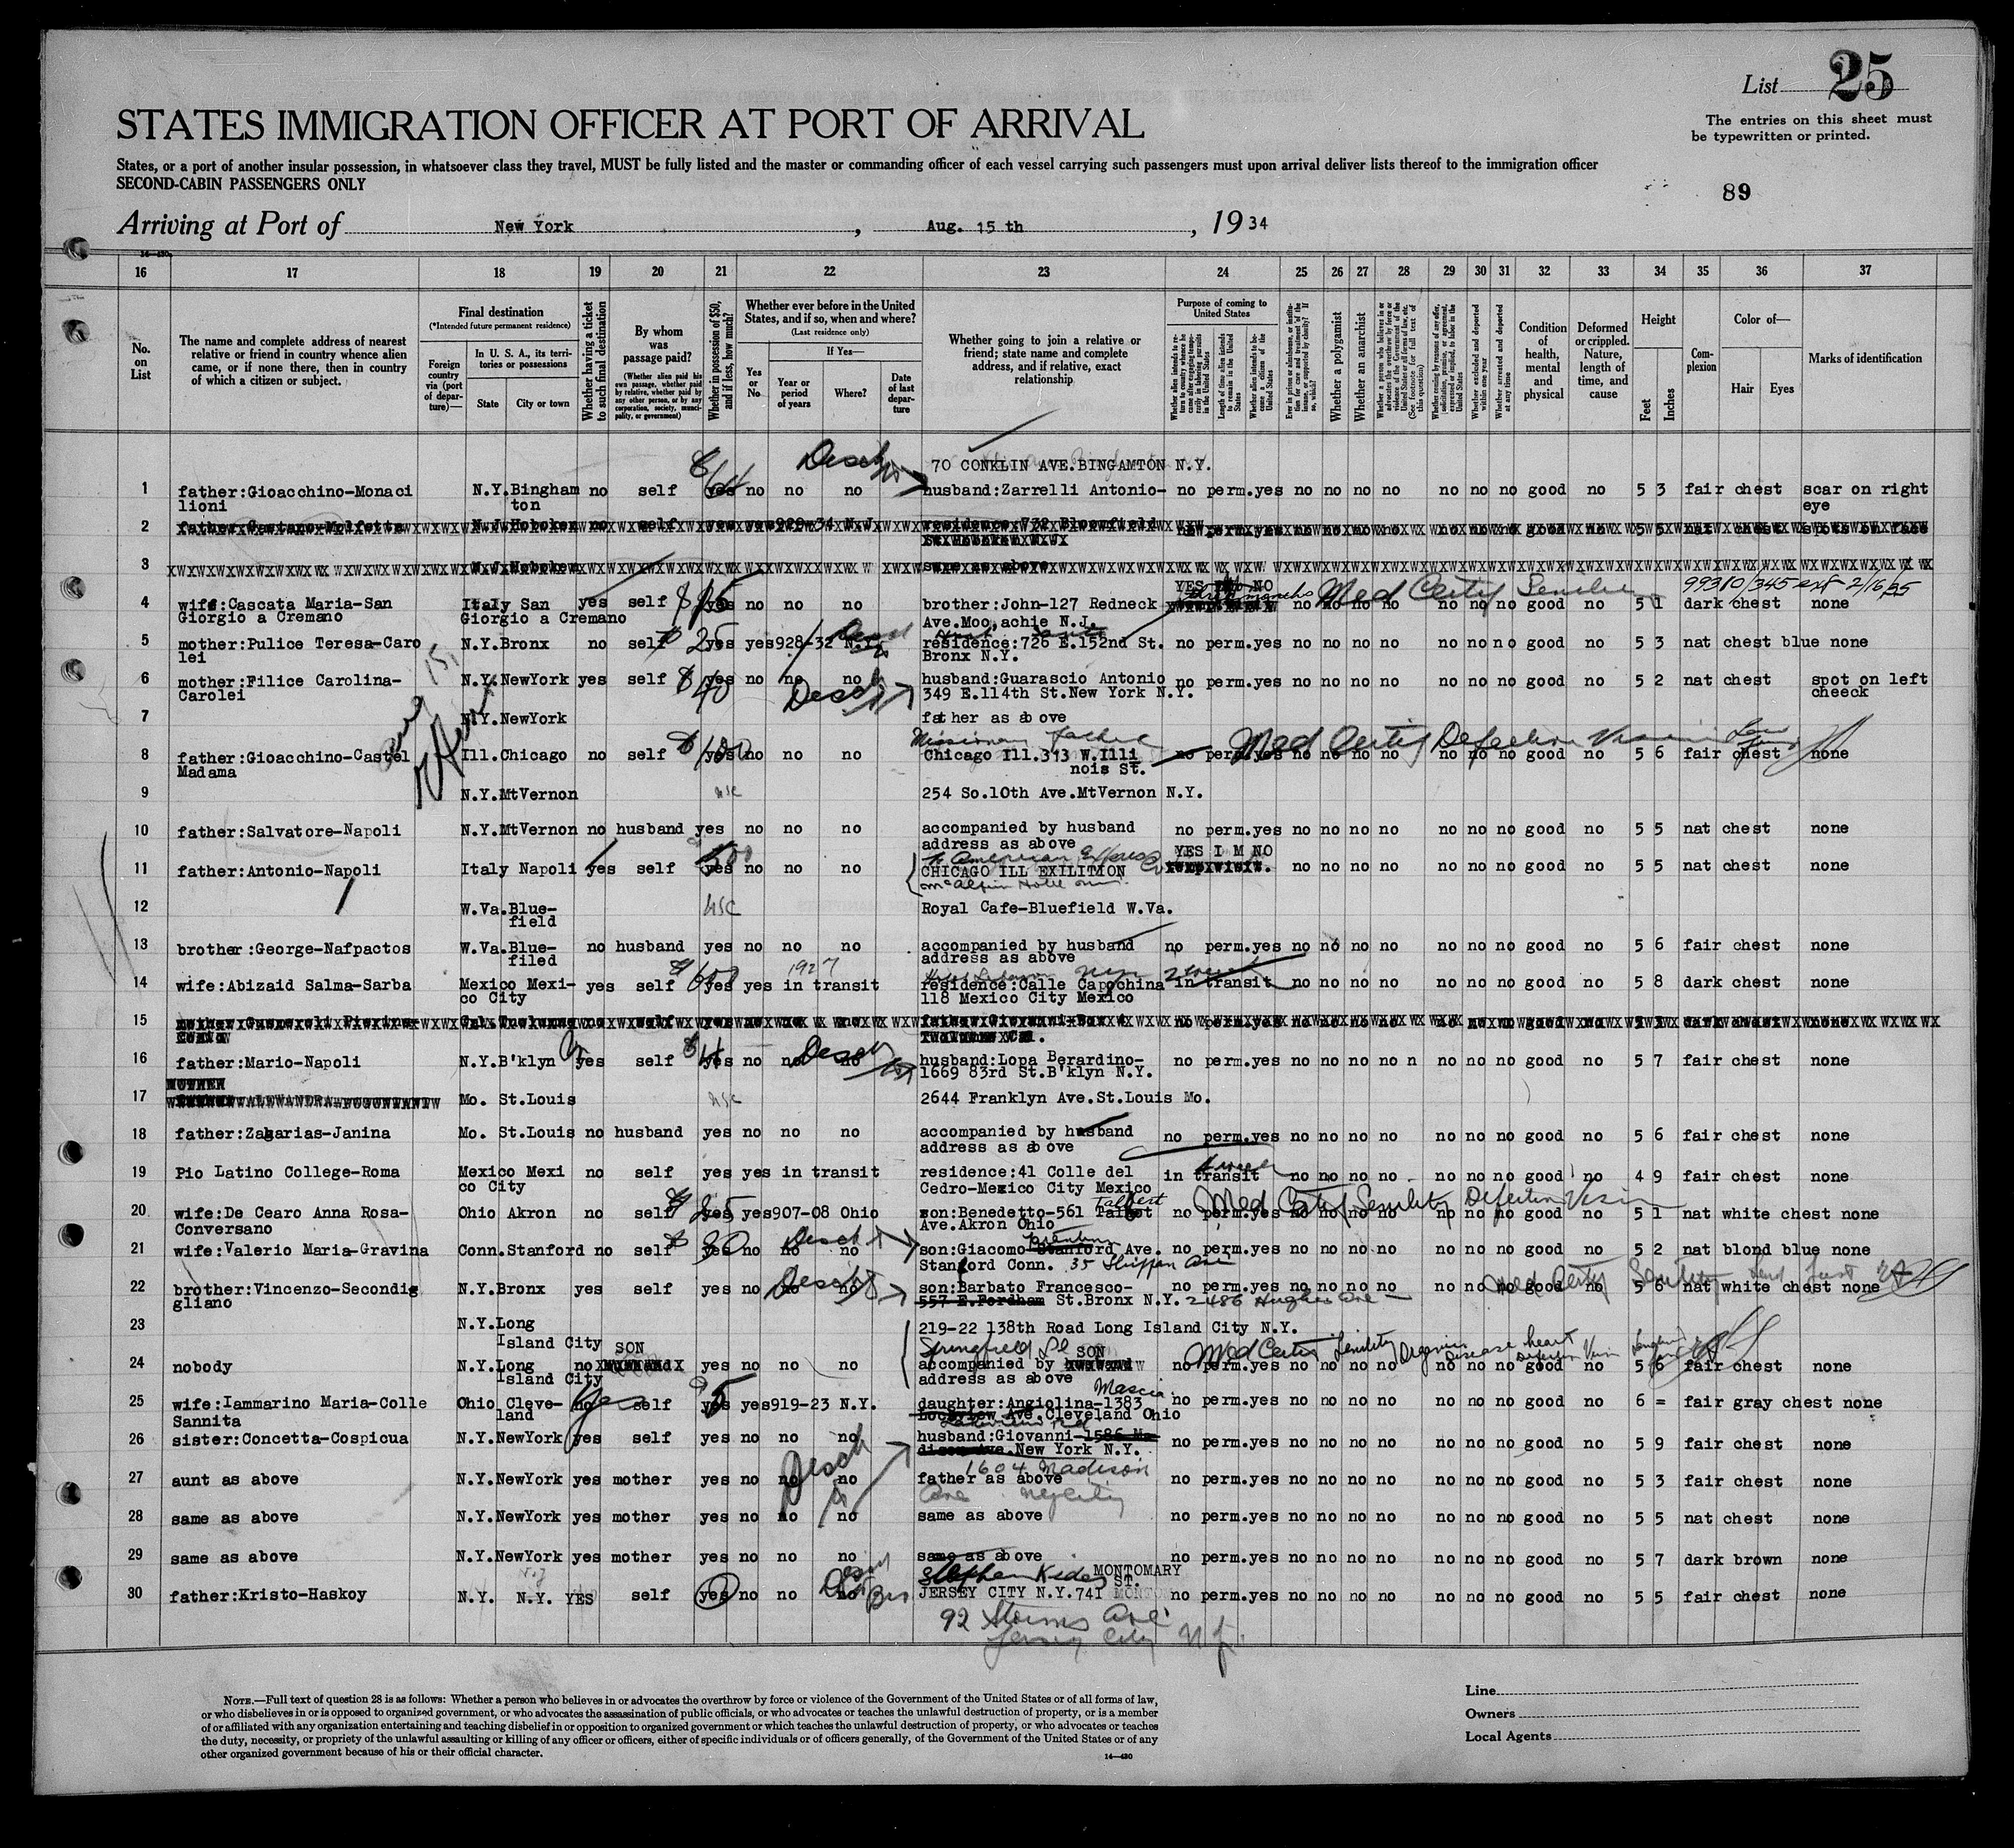 List 25
The entries on this sheet must
be typewritten or printed.
STATES IMMIGRATION OFFICER AT PORT OF ARRIVAL
States, or a port of another insular possession, in whatsoever class they travel, MUST be fully listed and the master or commanding officer of each vessel carrying such passengers must upon arrival deliver lists thereof to the immigration officer
SECOND-CABIN PASSENGERS ONLY
89
Arriving at Port of New York, Aug. 15 th, 1934
16 17 18 19 20 21 22 23 24 25 26 27 28 29 30 31 32 33 34 35 36 37
No. on List
The name and complete address of nearest relative or friend in country whence alien came, or if none there, then in country of which a citizen or subject.
Final destination
(*Intended future permanent residence)
Foreign country via (port of departure)—
In U. S. A., its territories or possessions
State City or town
Whether having a ticket to such final destination
By whom was passage paid?
(Whether alien paid his own passage, whether paid by relative, whether paid by any other person, or by any corporation, society, municipality, or government)
Whether in possession of $50, and if less, how much?
Whether ever before in the United States, and if so, when and where?
(Last residence only)
Yes or No
If Yes—
Year or period of years Where? Date of last departure
Whether going to join a relative or friend; state name and complete address, and if relative, exact relationship
Purpose of coming to United States
Whether alien intends to return to country whence he came after engaging temporarily in laboring pursuits in the United States
Length of time alien intends to remain in the United States
Whether alien intends to become a citizen of the United States
Ever in prison or almshouse, or institution for care and treatment of the insane, or supported by charity? If so, which?
Whether a polygamist
Whether an anarchist
Whether a person who believes in or advocates the overthrow by force or violence of the Government of the United States or all forms of law, etc. (See footnote for full text of this question)
Whether coming by reasons of any offer, solicitation, promise, or agreement, expressed or implied, to labor in the United States
Whether excluded and deported within one year
Whether arrested and deported at any time
Condition of health, mental and physical
Deformed or crippled. Nature, length of time, and cause
Height
Feet Inches
Complexion
Color of—
Hair Eyes
Marks of identification
70 CONKLIN AVE.BINGAMTON N.Y.
1 father:Gioacchino-Monaci N.Y.Bingham no self yes no no no husband:Zarrelli Antonio- no perm.yes no no no no no no no good no 5 3 fair chest scar on right
lioni ton eye
2 father:Gaetano-Molfetta N.J.Hoboken no self yes yes929-34 N.J. residence:732 Bloomfield
3 N.J.Hoboken same as above
YES NO 99310/345 ext 2/16/35
4 wife:Cascata Maria-San Italy San yes self $ 15 yes no no no brother:John-127 Redneck no no no no Med Certif no no no good no 5 1 dark chest none
Giorgio a Cremano Giorgio a Cremano Ave.Moo,achie N.J.
5 mother:Pulice Teresa-Caro N.Y.Bronx no self 25 yes yes928-32 N.Y. residence:726 E.152nd St. no perm.yes no no no no no no no good no 5 3 nat chest blue none
lei Bronx N.Y.
6 mother:Filice Carolina- N.Y.NewYork yes self $ 40 yes no no no husband:Guarascio Antonio no perm.yes no no no no no no no good no 5 2 nat chest spot on left
Carolei 349 E.114th St.New York N.Y. cheeck
7 N.Y.NewYork father as above
Missionary father Med Certif Defective Vision
8 father:Gioacchino-Castel Ill.Chicago no self $ 100 yes no no no Chicago Ill.313 W.Illi no perm.yes no no no no no no no good no 5 6 fair chest none
Madama nois St.
9 N.Y.MtVernon USC 254 So.10th Ave.MtVernon N.Y.
10 father:Salvatore-Napoli N.Y.MtVernon no husband yes no no no accompanied by husband no perm.yes no no no no no no no good no 5 5 nat chest none
address as above
YES I M NO
11 father:Antonio-Napoli Italy Napoli yes self 500 yes no no no CHICAGO ILL EXILITION no no no no no no no good no 5 5 nat chest none
McAlpin Hotel
12 W.Va.Blue- USC Royal Cafe-Bluefield W.Va.
field
13 brother:George-Nafpactos W.Va.Blue- no husband yes no no no accompanied by husband no perm.yes no no no no no no no good no 5 6 fair chest none
filed address as above
1927
14 wife:Abizaid Salma-Sarba Mexico Mexi- yes self $ 600 yes yes in transit residence:Calle Capochina in transit no no no no no no no good no 5 8 dark chest none
co City 118 Mexico City Mexico
15
16 father:Mario-Napoli N.Y.B'klyn yes self yes no no no husband:Lopa Berardino- no perm.yes no no no no n no no no good no 5 7 fair chest none
1669 83rd St.B'klyn N.Y.
MOTHER
17 Mo. St.Louis USC 2644 Franklyn Ave.St.Louis Mo.
18 father:Zaharias-Janina Mo. St.Louis no husband yes no no no accompanied by husband no perm.yes no no no no no no no good no 5 6 fair chest none
address as above
19 Pio Latino College-Roma Mexico Mexi no self yes yes in transit residence:41 Colle del in transit no no no no no no no good no 4 9 fair chest none
co City Cedro-Mexico City Mexico
Talbert Med Certif Senility Defective Vision
20 wife:De Cearo Anna Rosa- Ohio Akron no self $ 25 yes yes907-08 Ohio son:Benedetto-561 Talbot no perm.yes no no no no no no no good no 5 1 nat white chest none
Conversano Ave.Akron Ohio
21 wife:Valerio Maria-Gravina Conn.Stanford no self $ 30 yes no no no son:Giacomo-Stanford Ave. no perm.yes no no no no no no no good no 5 2 nat blond blue none
Stanford Conn. 35 Shippan Ave
22 brother:Vincenzo-Secondig N.Y.Bronx yes self yes no no no son:Barbato Francesco- no perm.yes no no no no no no no good no 5 6 nat white chest none
gliano 557 E.Fordham St.Bronx N.Y. 2486 Hughes Ave
23 N.Y.Long 219-22 138th Road Long Island City N.Y.
Island City
SON Springfield SON Med Certif Senility Organic disease heart Defective Vision
24 nobody N.Y.Long no yes no no no accompanied by no perm.yes no no no no no no no good no 5 6 fair chest none
Island City address as above
25 wife:Iammarino Maria-Colle Ohio Cleve- no yes self 5 yes yes919-23 N.Y. daughter:Angiolina-1383 no perm.yes no no no no no no no good no 6 = fair gray chest none
Sannita land Cleveland Ohio
26 sister:Concetta-Cospicua N.Y.NewYork yes self yes no no no husband:Giovanni-1586 Ma no perm.yes no no no no no no no good no 5 9 fair chest none
dison Ave.New York N.Y.
1604 Madison
27 aunt as above N.Y.NewYork yes mother yes no no no father as above no perm.yes no no no no no no no good no 5 3 fair chest none
Ave
28 same as above N.Y.NewYork yes mother yes no no no same as above no perm.yes no no no no no no no good no 5 5 nat chest none
29 same as above N.Y.NewYork yes mother yes no no no same as above no perm.yes no no no no no no no good no 5 7 dark brown none
Stephen MONTOMARY
ST.
30 father:Kristo-Haskoy N.Y. N.Y. YES self yes no no no JERSEY CITY N.Y.741 no perm.yes no no no no no no no good no 5 5 fair chest none
92 Storms Ave
Jersey City N.J.
NOTE.—Full text of question 28 is as follows: Whether a person who believes in or advocates the overthrow by force or violence of the Government of the United States or of all forms of law,
or who disbelieves in or is opposed to organized government, or who advocates the assassination of public officials, or who advocates or teaches the unlawful destruction of property, or is a member
of or affiliated with any organization entertaining and teaching disbelief in or opposition to organized government or which teaches the unlawful destruction of property, or who advocates or teaches
the duty, necessity, or propriety of the unlawful assaulting or killing of any officer or officers, either of specific individuals or of officers generally, of the Government of the United States or of any
other organized government because of his or their official character.
14—430
Line
Owners
Local Agents